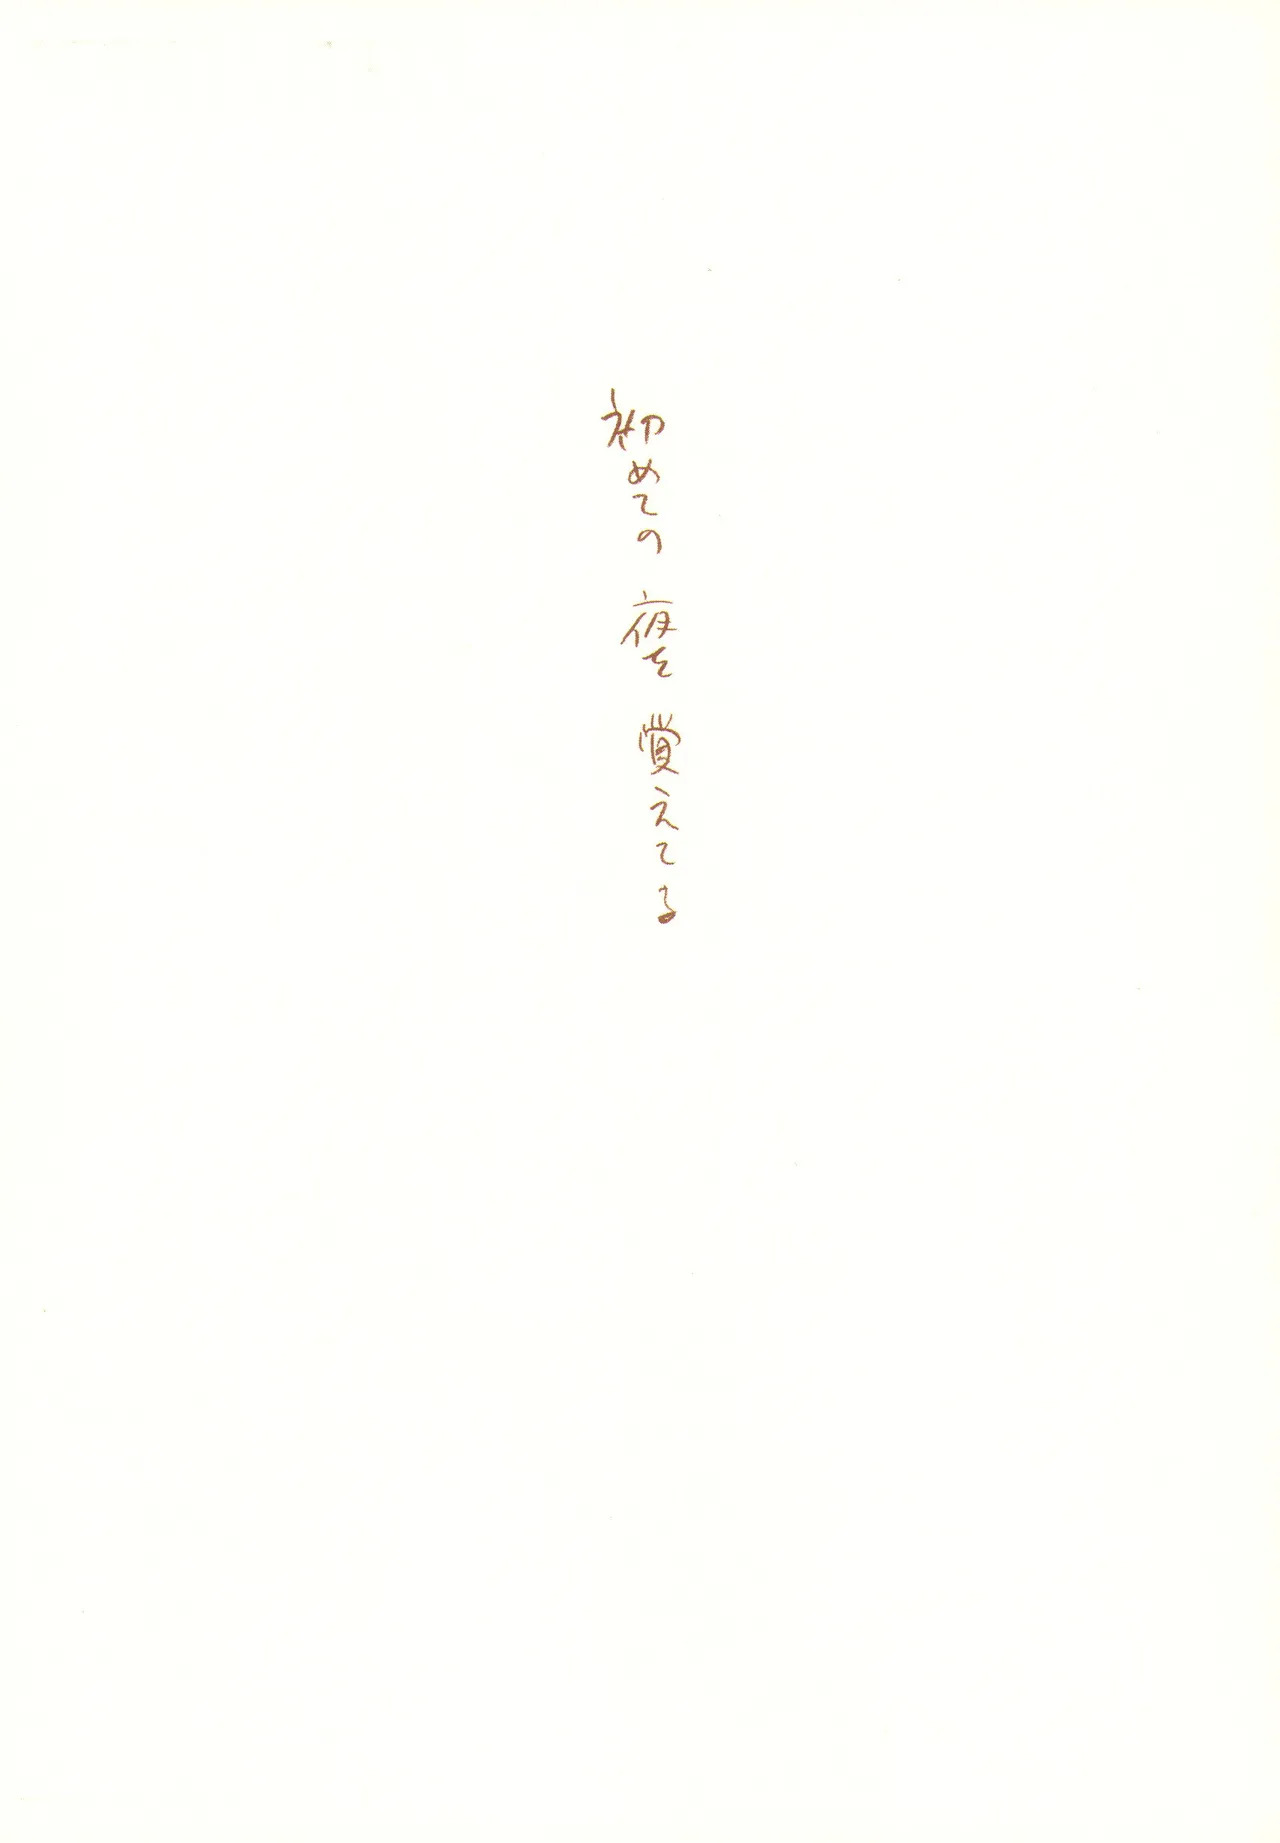 初めての 夜を 覚えてる